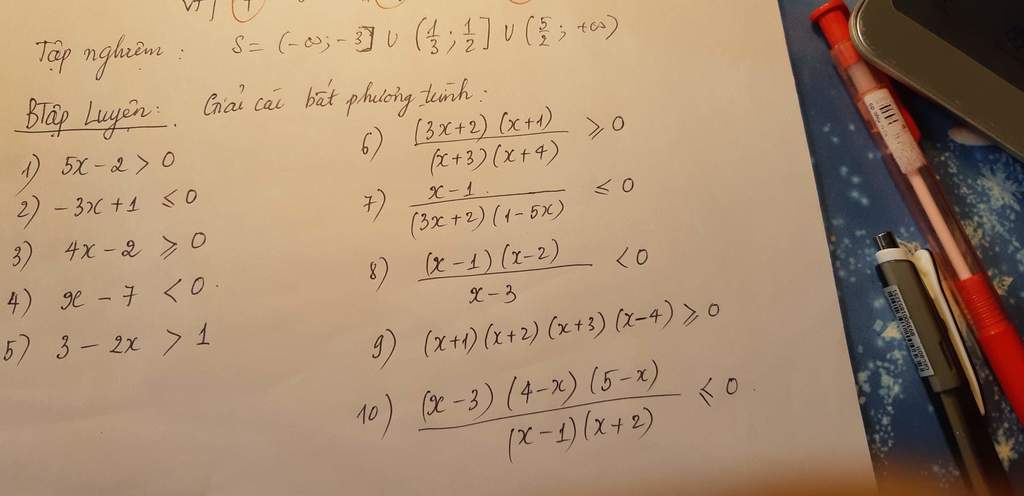 Tập nghiệm : S = (-∞; -3] ∪ (1/3; 1/2] ∪ (5/2; +∞)
BTập Luyện: Giải các bất phương trình:
1) 5x - 2 > 0
2) -3x + 1 ≤ 0
3) 4x - 2 ≥ 0
4) x - 7 < 0.
5) 3 - 2x > 1
6) (3x+2)(x+1) / (x+3)(x+4) ≥ 0
7) x-1 / (3x+2)(1-5x) ≤ 0
8) (x-1)(x-2) / x-3 < 0
9) (x+1)(x+2)(x+3)(x-4) ≥ 0
10) (x-3)(4-x)(5-x) / (x-1)(x+2) ≤ 0.